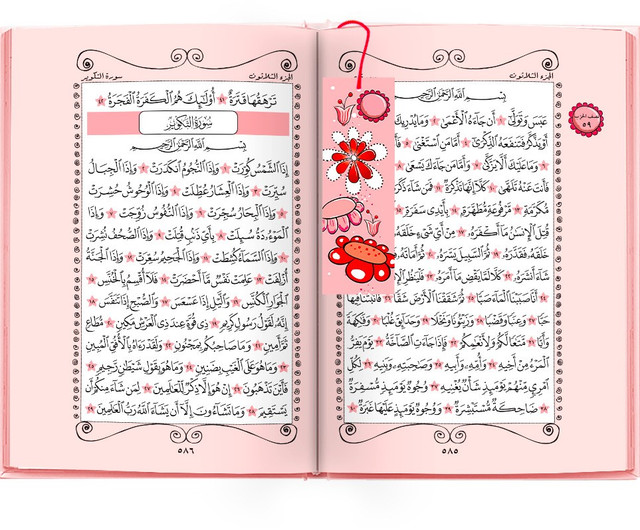 الجزء الثلاثون
بِسْمِ اللَّهِ الرَّحْمَٰنِ الرَّحِيمِ
عَبَسَ وَتَوَلَّىٰ ١ أَن جَاءَهُ الْأَعْمَىٰ ٢ وَمَا يُدْرِيكَ
أَوْ يَذَّكَّرُ فَتَنفَعَهُ الذِّكْرَىٰ ٤ أَمَّا مَنِ اسْتَغْنَىٰ ٥
وَمَا عَلَيْكَ أَلَّا يَزَّكَّىٰ ٧ وَأَمَّا مَن جَاءَكَ يَسْعَىٰ ٨
فَأَنتَ عَنْهُ تَلَهَّىٰ ١٠ كَلَّا إِنَّهَا تَذْكِرَةٌ ١١ فَمَن شَاءَ ذَكَرَهُ
مُّكَرَّمَةٍ ١٣ مَّرْفُوعَةٍ مُّطَهَّرَةٍ ١٤ بِأَيْدِي سَفَرَةٍ ١٥
قُتِلَ الْإِنسَانُ مَا أَكْفَرَهُ ١٧ مِنْ أَيِّ شَيْءٍ خَلَقَهُ
خَلَقَهُ فَقَدَّرَهُ ١٩ ثُمَّ السَّبِيلَ يَسَّرَهُ ٢٠ ثُمَّ أَمَاتَهُ
شَاءَ أَنشَرَهُ ٢٢ كَلَّا لَمَّا يَقْضِ مَا أَمَرَهُ ٢٣ فَلْيَنظُرِ
أَنَّا صَبَبْنَا الْمَاءَ صَبًّا ٢٥ ثُمَّ شَقَقْنَا الْأَرْضَ شَقًّا ٢٦ فَأَنبَتْنَا فِيهَا
حَبًّا ٢٧ وَعِنَبًا وَقَضْبًا ٢٨ وَزَيْتُونًا وَنَخْلًا ٢٩ وَحَدَائِقَ غُلْبًا ٣٠ وَفَاكِهَةً
وَأَبًّا ٣١ مَّتَاعًا لَّكُمْ وَلِأَنْعَامِكُمْ ٣٢ فَإِذَا جَاءَتِ الصَّاخَّةُ ٣٣ يَوْمَ يَفِرُّ
الْمَرْءُ مِنْ أَخِيهِ ٣٤ وَأُمِّهِ وَأَبِيهِ ٣٥ وَصَاحِبَتِهِ وَبَنِيهِ ٣٦ لِكُلِّ
امْرِئٍ مِّنْهُمْ يَوْمَئِذٍ شَأْنٌ يُغْنِيهِ ٣٧ وُجُوهٌ يَوْمَئِذٍ مُّسْفِرَةٌ ٣٨
ضَاحِكَةٌ مُّسْتَبْشِرَةٌ ٣٩ وَوُجُوهٌ يَوْمَئِذٍ عَلَيْهَا غَبَرَةٌ ٤٠
٥٨٥
نصف الحزب
٥٩
الجزء الثلاثون
سورة التكوير
تَرْهَقُهَا قَتَرَةٌ ٤١ أُولَٰئِكَ هُمُ الْكَفَرَةُ الْفَجَرَةُ ٤٢
سُورَةُ التَّكْوِيرِ
بِسْمِ اللَّهِ الرَّحْمَٰنِ الرَّحِيمِ
إِذَا الشَّمْسُ كُوِّرَتْ ١ وَإِذَا النُّجُومُ انكَدَرَتْ ٢ وَإِذَا الْجِبَالُ
سُيِّرَتْ ٣ وَإِذَا الْعِشَارُ عُطِّلَتْ ٤ وَإِذَا الْوُحُوشُ حُشِرَتْ
٥ وَإِذَا الْبِحَارُ سُجِّرَتْ ٦ وَإِذَا النُّفُوسُ زُوِّجَتْ ٧ وَإِذَا
الْمَوْءُودَةُ سُئِلَتْ ٨ بِأَيِّ ذَنبٍ قُتِلَتْ ٩ وَإِذَا الصُّحُفُ نُشِرَتْ
١٠ وَإِذَا السَّمَاءُ كُشِطَتْ ١١ وَإِذَا الْجَحِيمُ سُعِّرَتْ ١٢ وَإِذَا الْجَنَّةُ
أُزْلِفَتْ ١٣ عَلِمَتْ نَفْسٌ مَّا أَحْضَرَتْ ١٤ فَلَا أُقْسِمُ بِالْخُنَّسِ ١٥
الْجَوَارِ الْكُنَّسِ ١٦ وَاللَّيْلِ إِذَا عَسْعَسَ ١٧ وَالصُّبْحِ إِذَا تَنَفَّسَ ١٨
إِنَّهُ لَقَوْلُ رَسُولٍ كَرِيمٍ ١٩ ذِي قُوَّةٍ عِندَ ذِي الْعَرْشِ مَكِينٍ ٢٠ مُّطَاعٍ
ثَمَّ أَمِينٍ ٢١ وَمَا صَاحِبُكُم بِمَجْنُونٍ ٢٢ وَلَقَدْ رَآهُ بِالْأُفُقِ الْمُبِينِ
٢٣ وَمَا هُوَ عَلَى الْغَيْبِ بِضَنِينٍ ٢٤ وَمَا هُوَ بِقَوْلِ شَيْطَانٍ رَّجِيمٍ ٢٥
فَأَيْنَ تَذْهَبُونَ ٢٦ إِنْ هُوَ إِلَّا ذِكْرٌ لِّلْعَالَمِينَ ٢٧ لِمَن شَاءَ مِنكُمْ أَن
يَسْتَقِيمَ ٢٨ وَمَا تَشَاءُونَ إِلَّا أَن يَشَاءَ اللَّهُ رَبُّ الْعَالَمِينَ ٢٩
٥٨٦